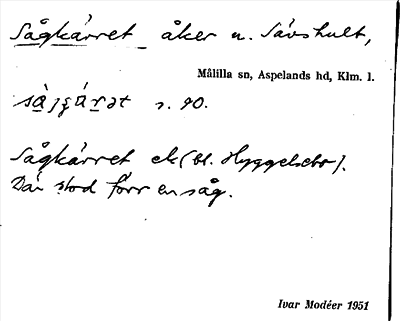 Sågkärret åker n. Sävshult,
Målilla sn, Aspelands hd, Klm. l.
s. 90.
Sågkärret ek (bl. Hyggelsebo).
Där stod förr en såg.
Ivar Modéer 1951